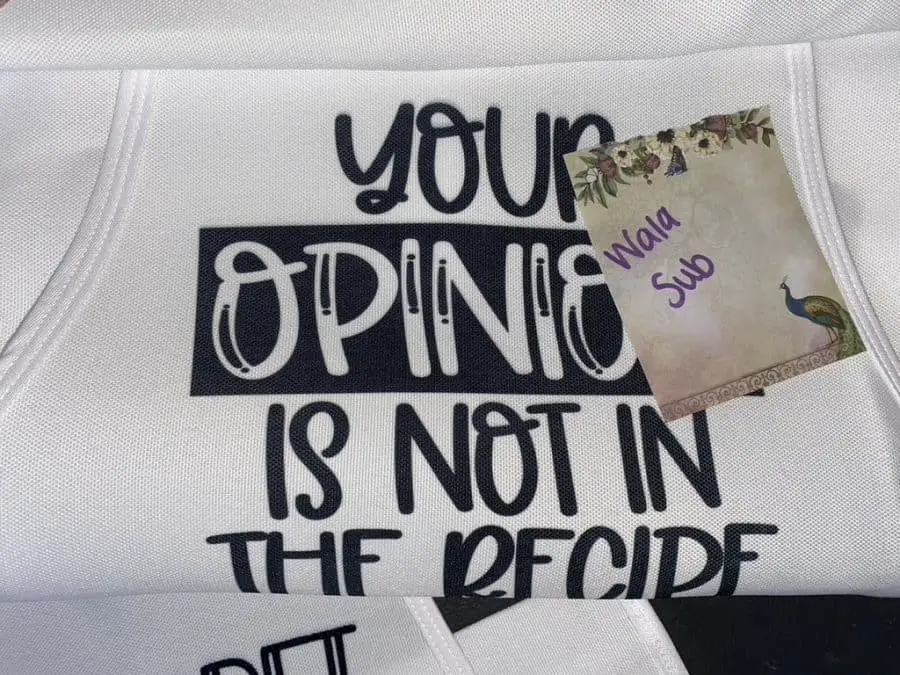 YOUR
OPINION
IS NOT IN
THE RECIPE
Wala
Sub